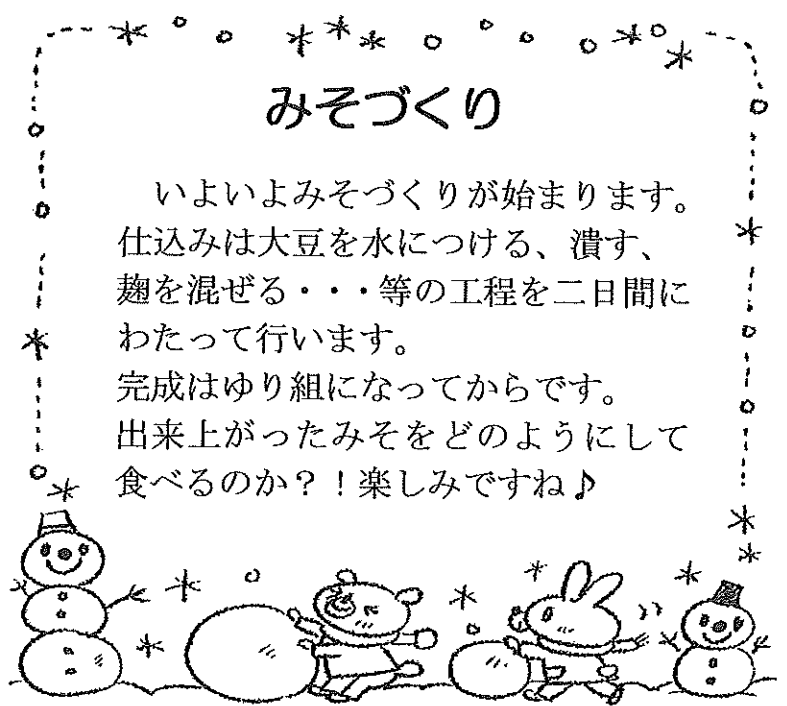 みそづくり
いよいよみそづくりが始まります。
仕込みは大豆を水につける、潰す、
麹を混ぜる・・・等の工程を二日間に
わたって行います。
完成はゆり組になってからです。
出来上がったみそをどのようにして
食べるのか？！楽しみですね♪